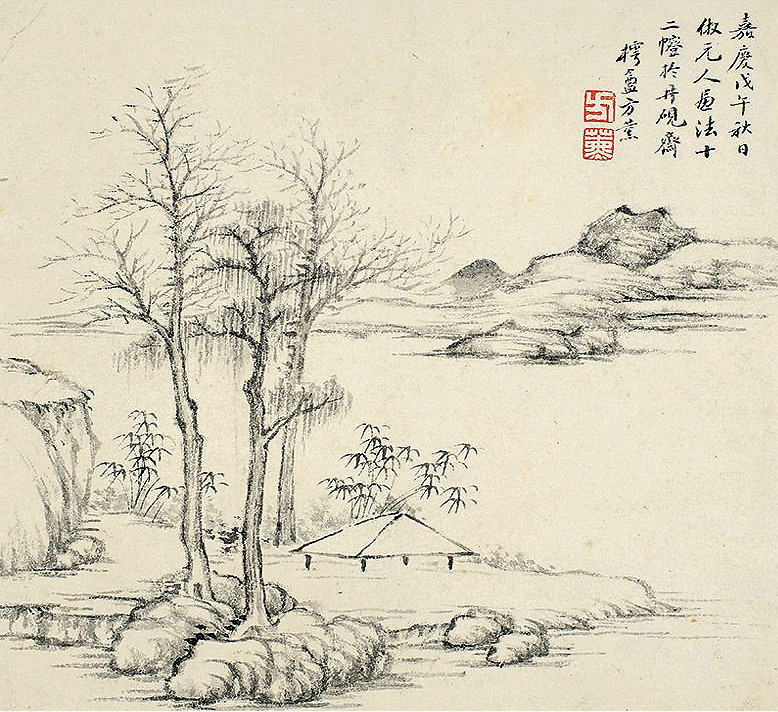 嘉慶戊午秋日
倣元人画法十
二幀於井硯齋
樗盦方薰
方
薰